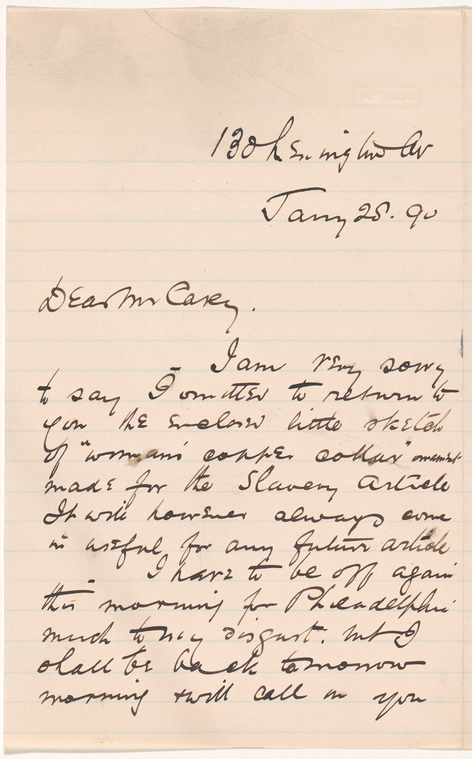 130 Lexington Av
Jany 28. 90
Dear Mr Carey,
I am very sorry
to say I omitted to return to
you the enclosed little sketch
of "woman's copper collar" ornament
made for the Slavery Article
It will however always come
in useful for any future article
I have to be off again
this morning for Philadelphia
much to my disgust. but I
shall be back tomorrow
morning & will call on you